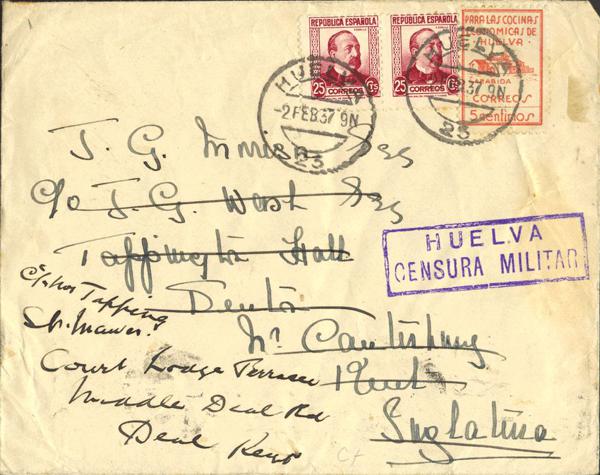 REPÚBLICA ESPAÑOLA
25 CTS
CORREOS
REPÚBLICA ESPAÑOLA
25 CTS
CORREOS
PARA LAS COCINAS
ECONÓMICAS DE
HUELVA
RABIDA
CORREOS
5 centimos
HUELVA
-2 FEB 37 9N
23
HUELVA
FEB 37 9N
23
J. G. Esq
c/o J. G. West Esq
Tappington Hall
Denton
Nr Canterbury
Kent
Inglaterra
HUELVA
CENSURA MILITAR
Tapping
Court Lodge Terrace
Middle Deal Rd
Deal Kent